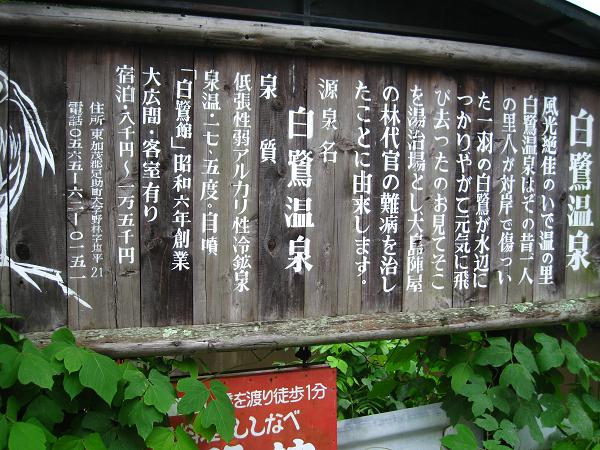 白鷺温泉
風光絶佳のいで温の里
白鷺温泉はその昔一人
の里人が対岸で傷つい
た一羽の白鷺が水辺に
つかりやがて元気に飛
び去ったのお見てそこ
を湯治場とし大島陣屋
の林代官の難病を治し
たことに由来します。
源泉名
白鷺温泉
泉質
低張性弱アルカリ性冷鉱泉
泉温・一七・五度。自噴
「白鷺館」昭和六年創業
大広間・客室有り
宿泊・八千円〜一万五千円
住所 東加茂郡足助町大字野林字塩平21
電話〇五六五ー六二ー〇一五一
を渡り徒歩1分
ししなべ